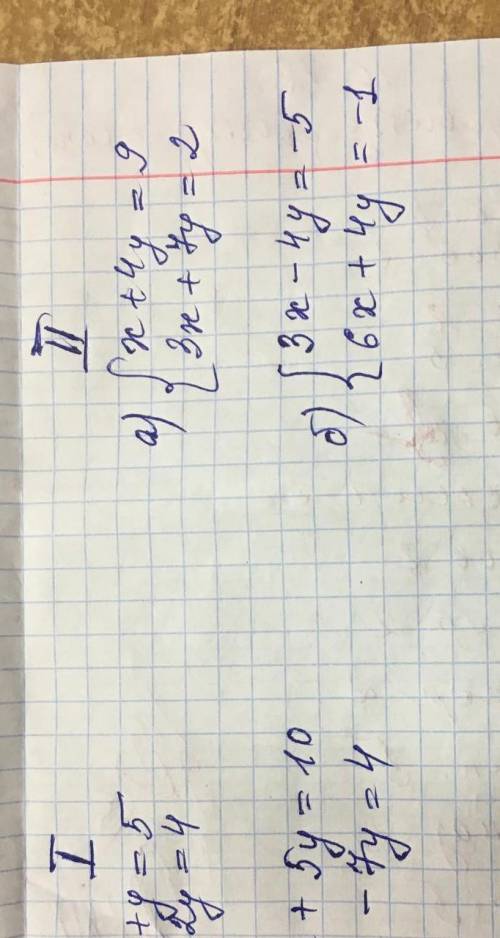 I
+y = 5
2y = 4
+ 5y = 10
- 7y = 4
II
а) { x + 4y = 9
3x + 7y = 2
б) { 3x - 4y = -5
6x + 4y = -1